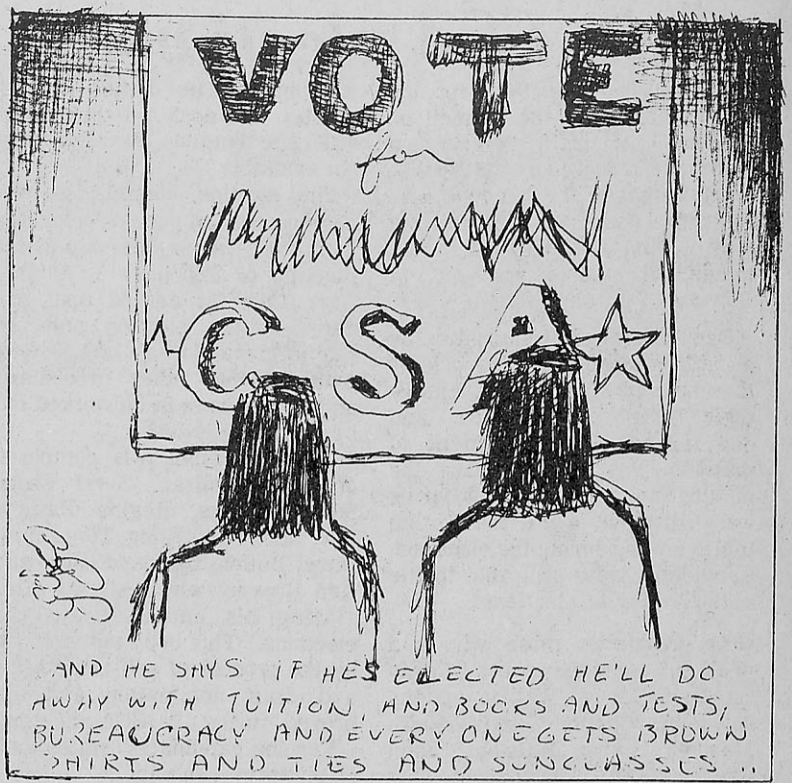 VOTE
for
CSA
AND HE SAYS IF HES ELECTED HE'LL DO
AWAY WITH TUITION, AND BOOKS AND TESTS,
BUREAUCRACY AND EVERY ONE GETS BROWN
SHIRTS AND TIES AND SUNGLASSES ..